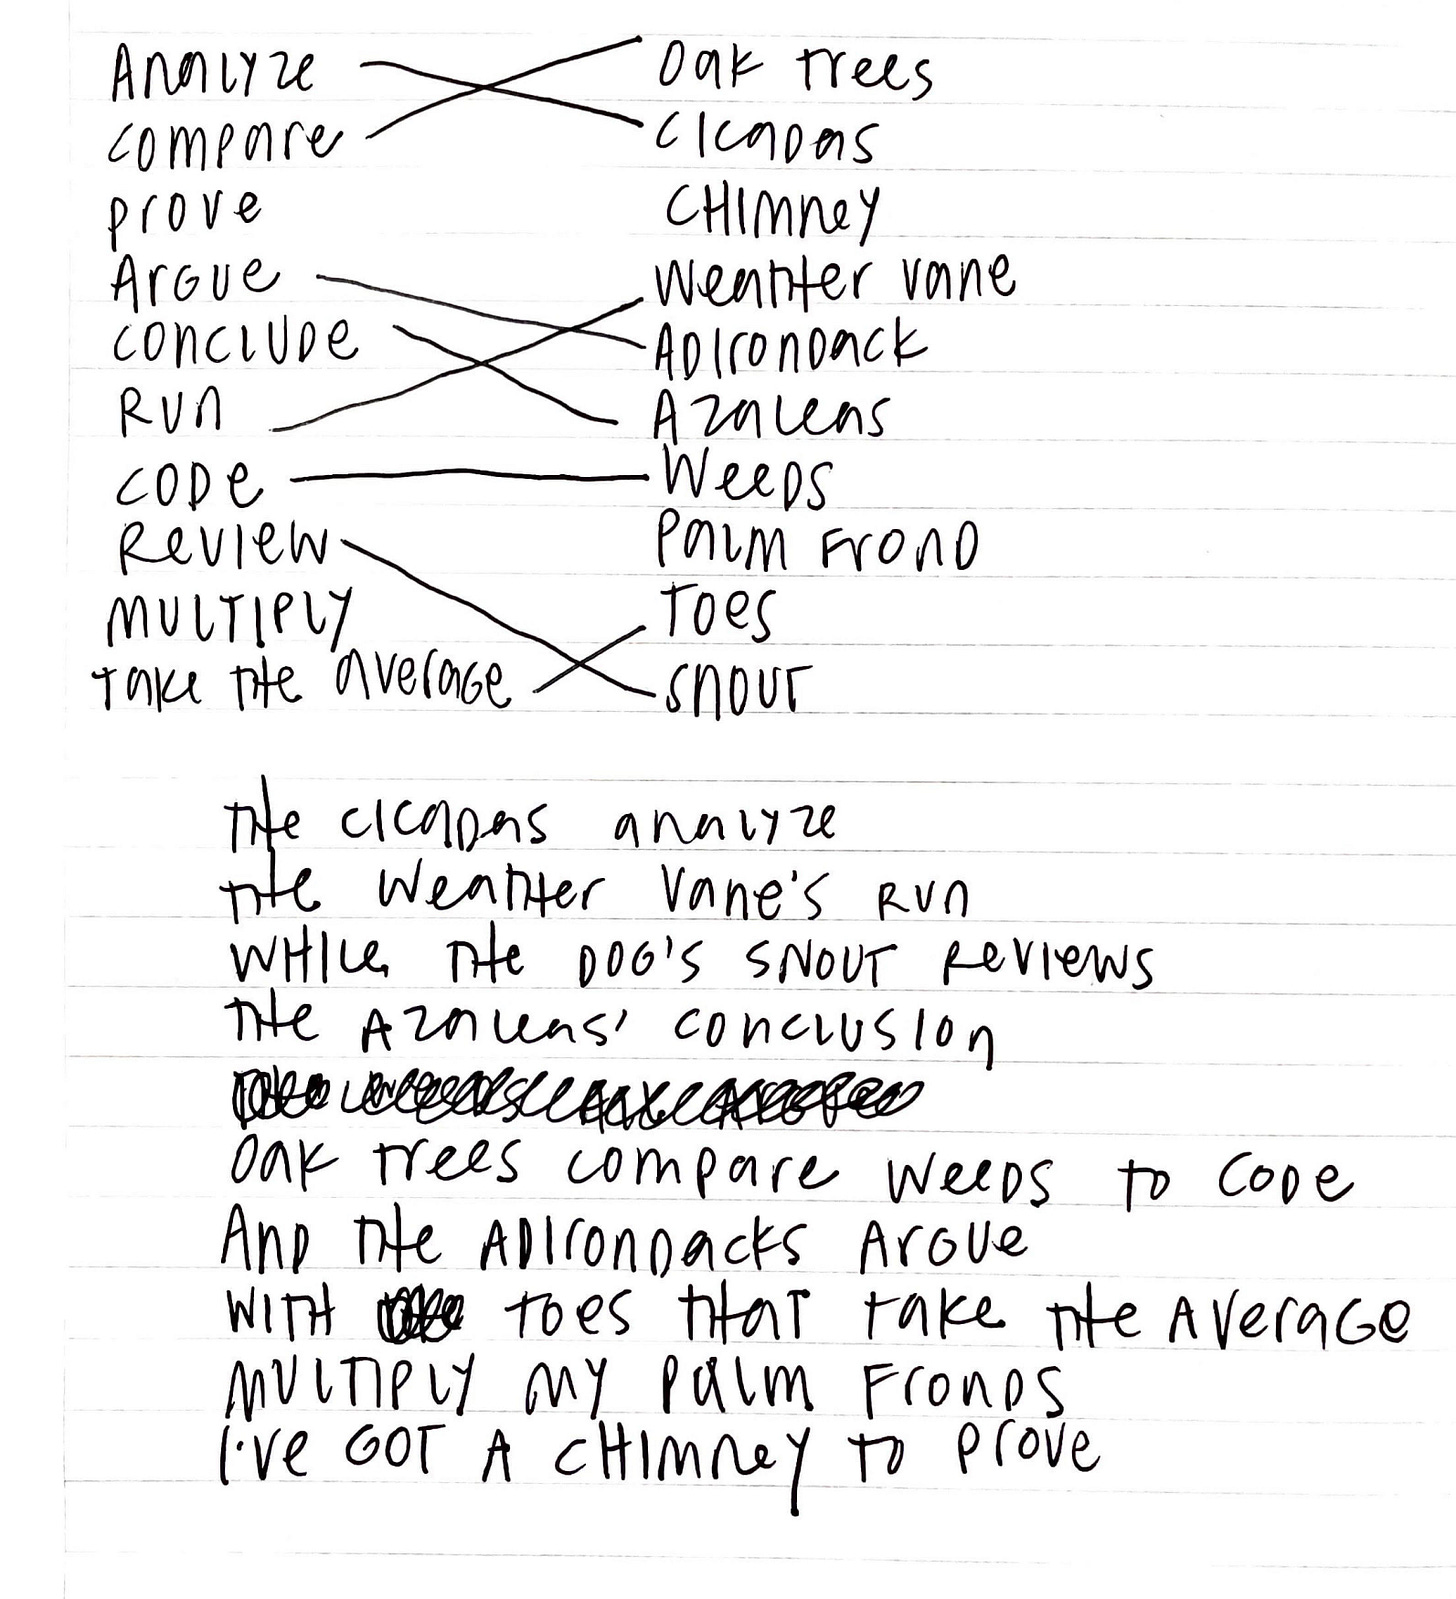 Analyze Oak Trees
Compare Cicadas
Prove Chimney
Argue Weather Vane
Conclude Adirondack
Run Azaleas
Code Weeds
Review Palm Frond
Multiply Toes
Take the average Snout
The cicadas analyze
the weather vane's run
while the dog's snout reviews
the azaleas' conclusion
Oak trees compare weeds to code
And the Adirondacks argue
with toes that take the average
Multiply my palm fronds
I've got a chimney to prove